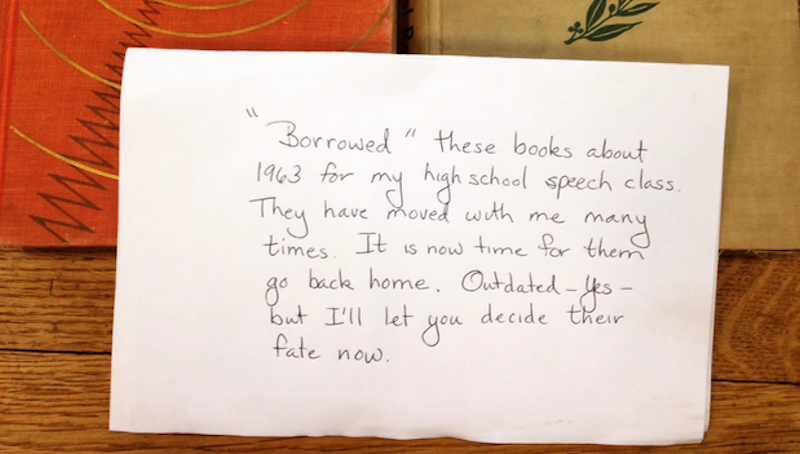 "Borrowed" these books about
1963 for my high school speech class.
They have moved with me many
times. It is now time for them
go back home. Outdated - Yes -
but I'll let you decide their
fate now.